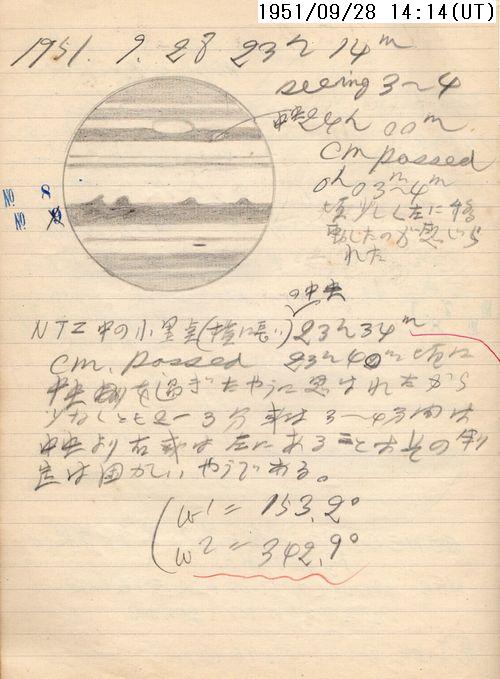 1951/09/28 14:14(UT)
1951. 9. 28 23h 14m
seeing 3~4
中央 24h 00m
cm passed
0h 03m~4m
頃少しく左に移
動したのが感じら
れた
No 8
No
の中央
NTZ中の小黒点(横に長い) 23h 34m
cm. passed 23h 40m 頃に
中央 を過ぎたやうに思はれたから
少なくとも2-3分或は3~4分間は
中央より右或は左にあることは其の判
定は困かしいやうである。
(ω1 = 153.2°
ω2 = 342.9°